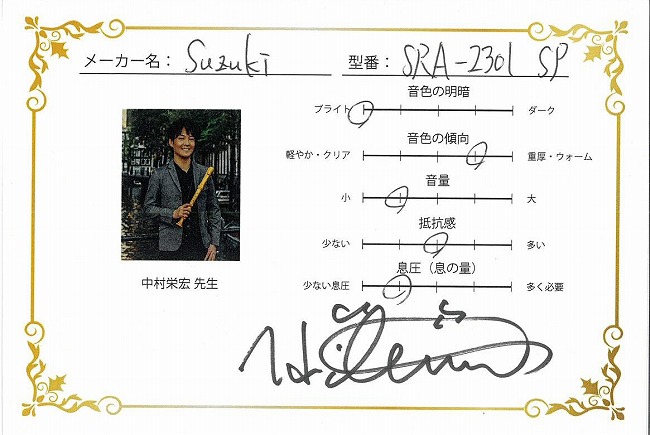 メーカー名： Suzuki 型番： SRA-230L SP
音色の明暗
ブライト ダーク
音色の傾向
軽やか・クリア 重厚・ウォーム
音量
小 大
抵抗感
少ない 多い
息圧（息の量）
少ない息圧 多く必要
中村栄宏 先生